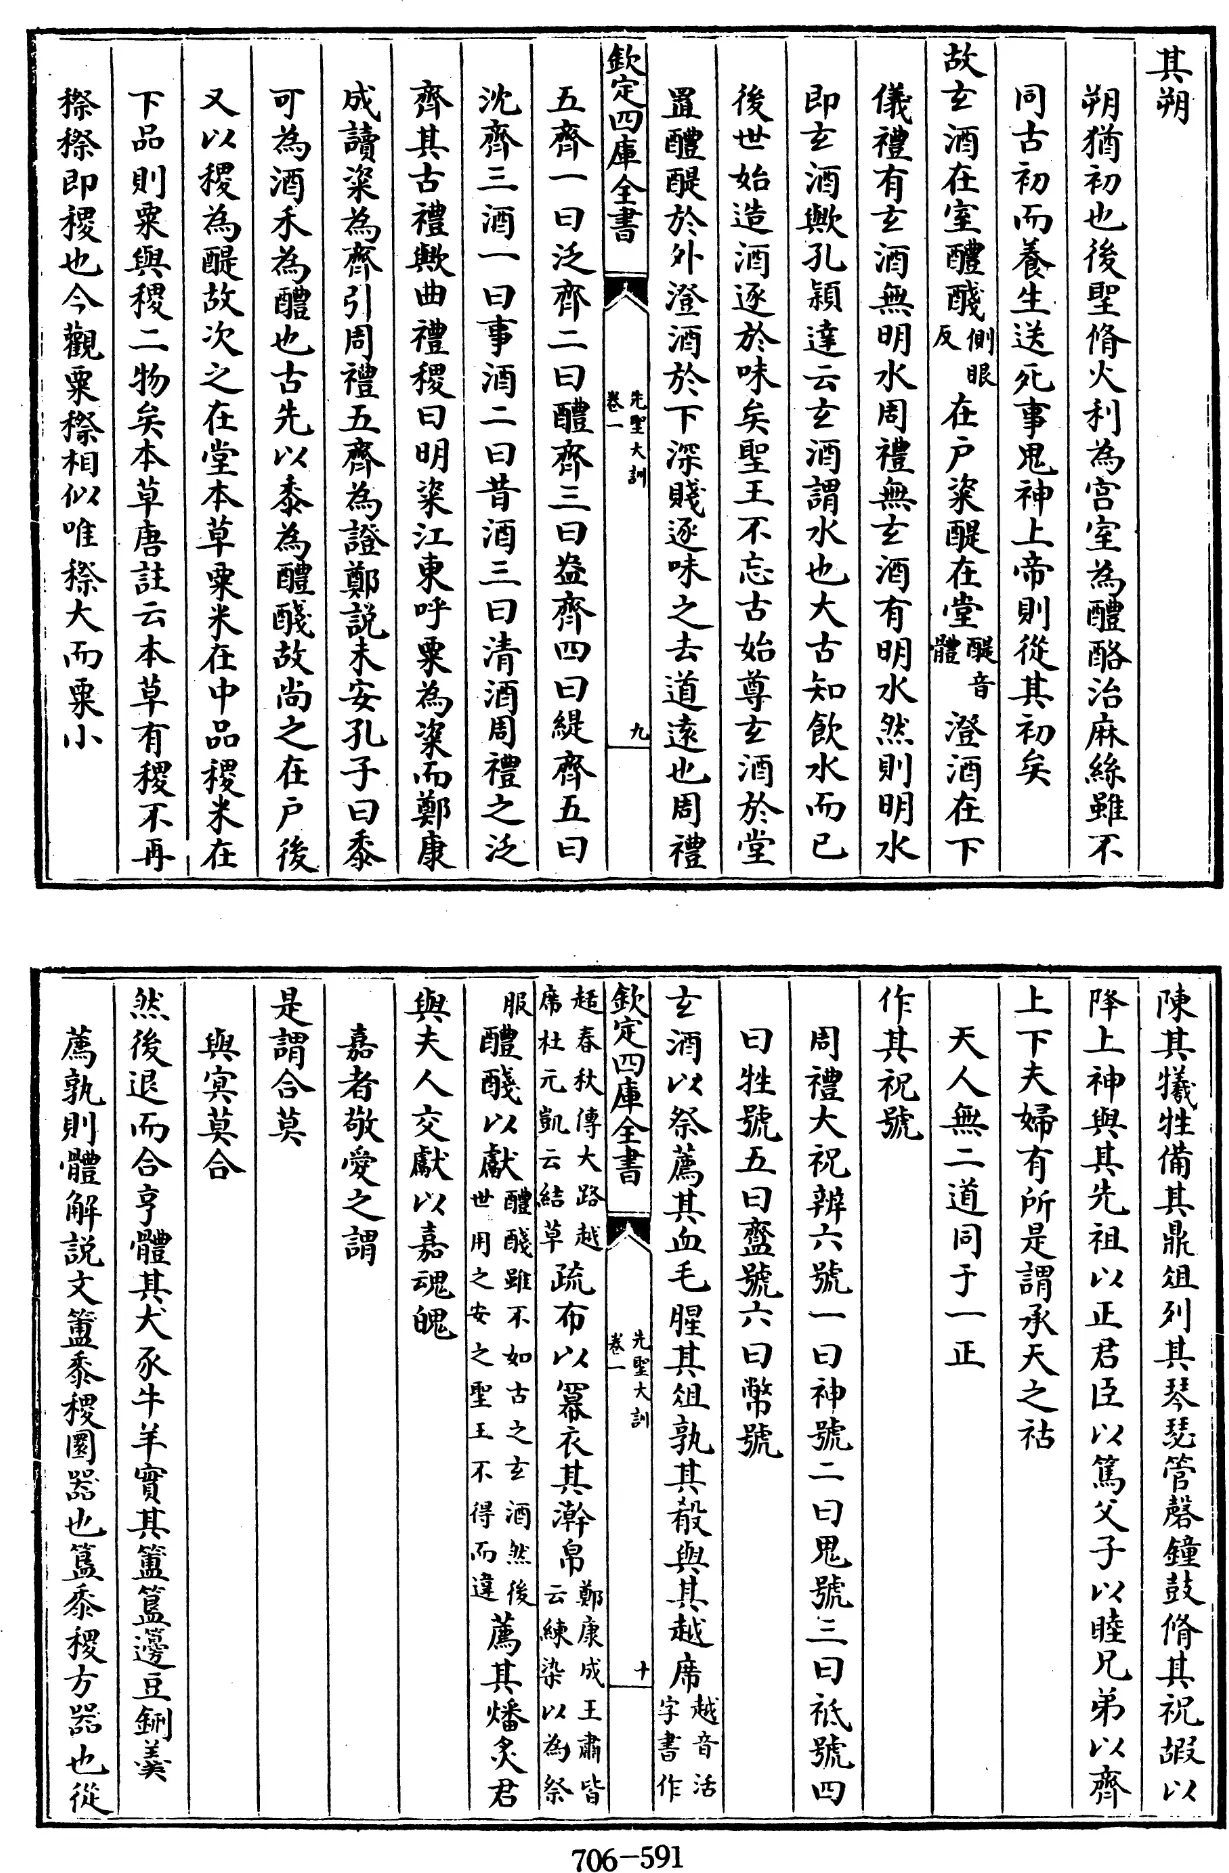 其朔
朔猶初也後聖脩火利為宫室為醴酪治麻絲雖不
同古初而養生送死事鬼神上帝則從其初矣
故玄酒在室醴醆側眼反在户粢醍在堂醍音體澄酒在下
儀禮有玄酒無明水周禮無玄酒有明水然則明水
即玄酒歟孔穎達云玄酒謂水也大古知飲水而已
後世始造酒逐於味矣聖王不忘古始尊玄酒於堂
置醴醍於外澄酒於下深賤逐味之去道遠也周禮
欽定四庫全書
先聖大訓
卷一
九
五齊一曰泛齊二曰醴齊三曰盎齊四曰緹齊五曰
沈齊三酒一曰事酒二曰昔酒三曰清酒周禮之泛
齊其古禮歟曲禮稷曰明粢江東呼粟為粢而鄭康
成讀粢為齊引周禮五齊為證鄭説未安孔子曰黍
可為酒禾為醴也古先以黍為醴醆故尚之在户後
又以稷為醍故次之在堂本草粟米在中品稷米在
下品則粟與稷二物矣本草唐註云本草有稷不再
穄穄即稷也今觀粟穄相似唯穄大而粟小
陳其犧牲備其鼎俎列其琴瑟管磬鐘鼓脩其祝嘏以
降上神與其先祖以正君臣以篤父子以睦兄弟以齊
上下夫婦有所是謂承天之祜
天人無二道同于一正
作其祝號
周禮大祝辨六號一曰神號二曰鬼號三曰祗號四
曰牲號五曰齍號六曰幣號
玄酒以祭薦其血毛腥其俎孰其殽與其越席越音活字書作
欽定四庫全書
先聖大訓
卷一
十
趏春秋傳大路越席杜元凱云結草疏布以冪衣其澣帛鄭康成王肅皆云練染以為祭
服醴醆以獻醴醆雖不如古之玄酒然後世用之安之聖王不得而違薦其燔炙君
與夫人交獻以嘉魂魄
嘉者敬愛之謂
是謂合莫
與冥莫合
然後退而合亨體其犬豕牛羊實其簠簋籩豆鉶羮
薦孰則體解説文簠黍稷圜器也簋黍稷方器也從
706-591